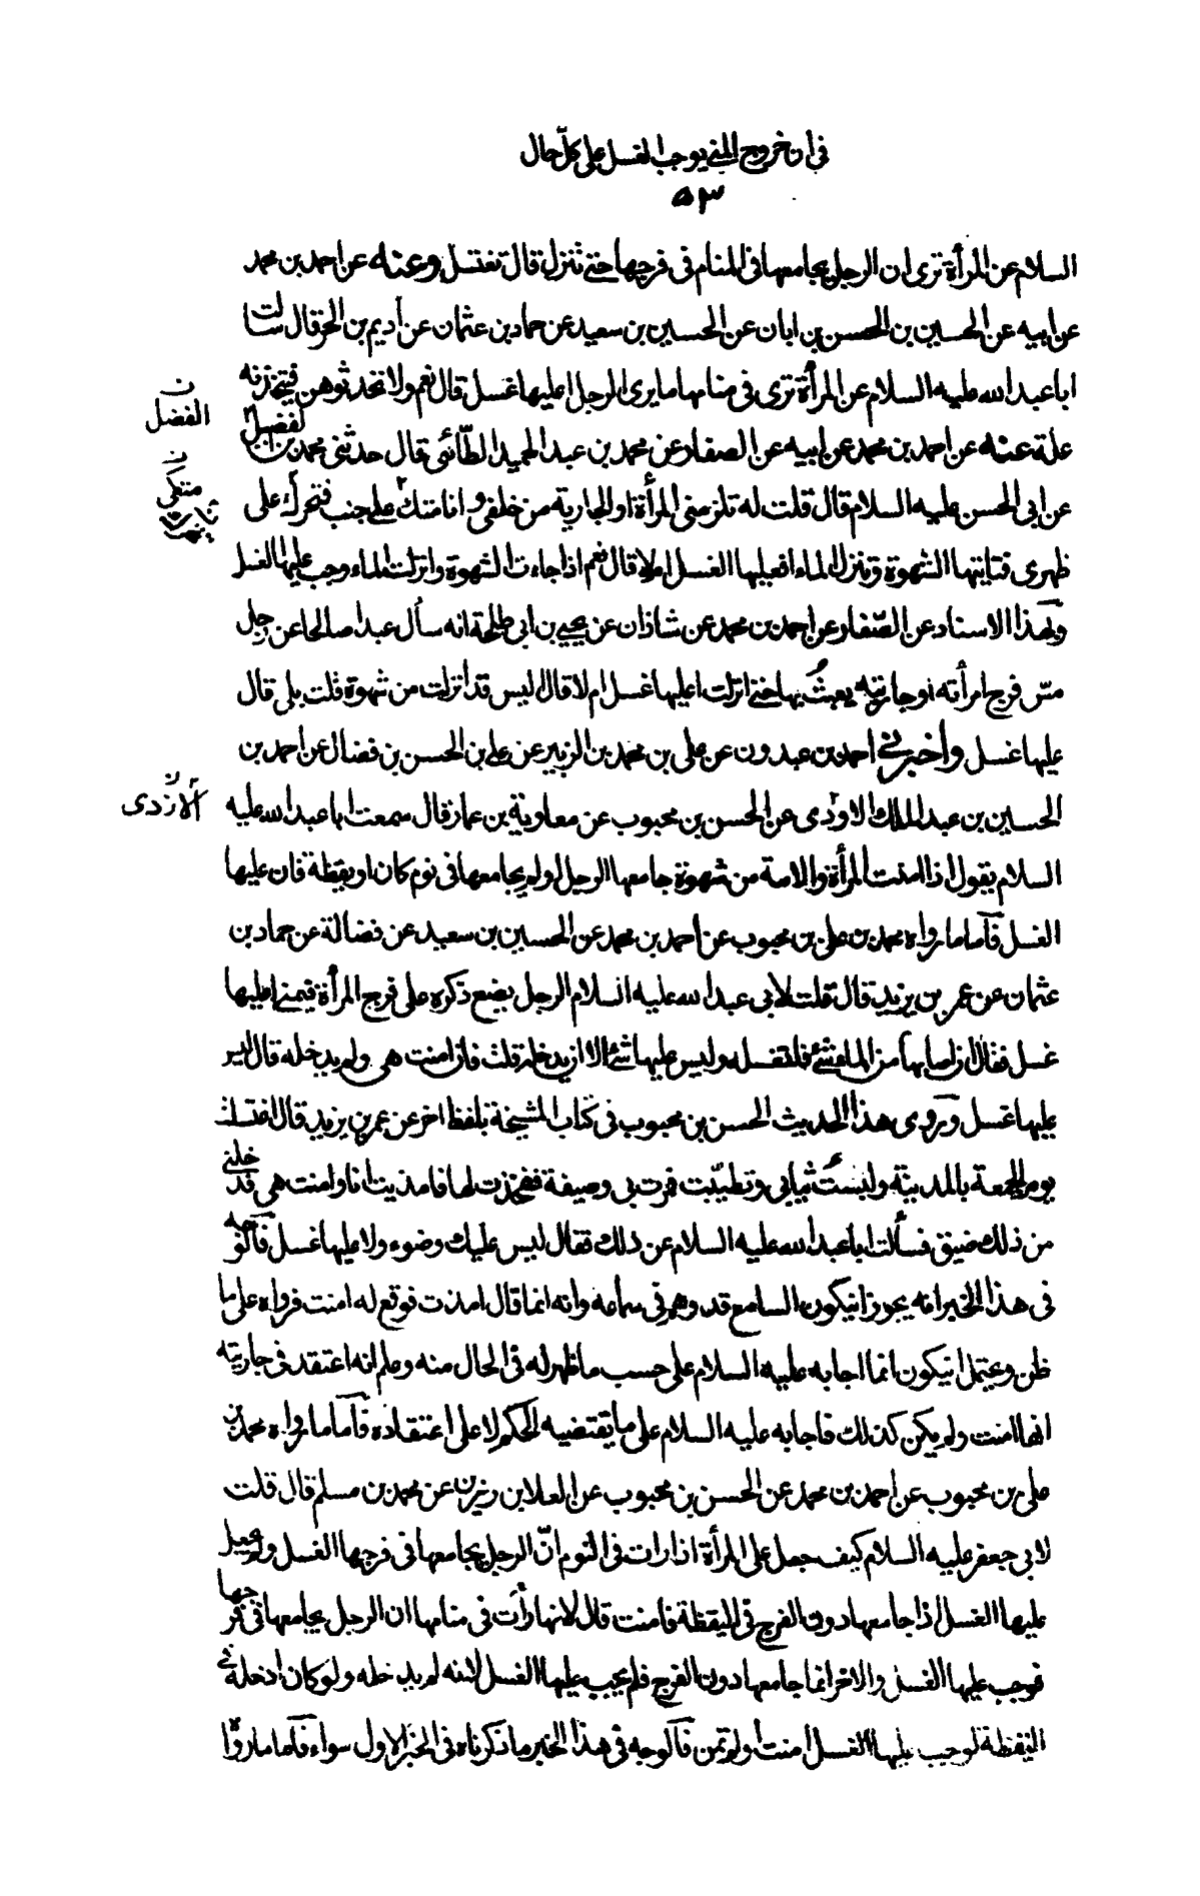 في ان خروج المني يوجب الغسل على كل حال
٥٣
السلام عن المرأة ترى ان الرجل يجامعها في المنام في فرجها حتى تنزل قال تغتسل وعنه عن احمد بن محمد
عن ابيه عن الحسين بن الحسن بن ابان عن الحسين بن سعيد عن حماد بن عثمان عن أديم بن الحر قال سالت
ابا عبد الله عليه السلام عن المرأة ترى في منامها ما يرى الرجل اعليها غسل قال نعم ولا تحدثوهن فيتخذنه
ن
الفضل
علة عنه عن احمد بن محمد عن ابيه عن الصفار عن محمد بن عبد الحميد الطائي قال حدثني محمد بن الفضيل
ن
متكي
عن ابي الحسن عليه السلام قال قلت له تلزمني المرأة او الجارية من خلفي وانا متك على جنب فتحرك على
ظهري فتاتيها الشهوة وتنزل الماء افعليها الغسل ام لا قال نعم اذا جاءت الشهوة وانزلت الماء وجب عليها الغسل
وبهذا الاسناد عن الصفار عن احمد بن محمد عن شاذان عن يحيى بن ابي طلحة انه سأل عبدا صالحا عن رجل
مس فرج امرأته او جاريته يعبث بها حتى انزلت اعليها غسل ام لا قال اليس قد انزلت من شهوة قلت بلى قال
عليها غسل واخبرني احمد بن عبدون عن علي بن محمد بن الزبير عن علي بن الحسن بن فضال عن احمد بن
ن
الازدى
الحسين بن عبد الملك الاودى عن الحسن بن محبوب عن معاوية بن عمار قال سمعت ابا عبد الله عليه
السلام يقول اذا امنت المرأة والامة من شهوة جامعها الرجل او لم يجامعها في نوم كان او يقظة فان عليها
الغسل فاما ما رواه محمد بن علي بن محبوب عن احمد بن محمد عن الحسين بن سعيد عن فضالة عن حماد بن
عثمان عن عمر بن يزيد قال قلت لابي عبد الله عليه السلام الرجل يضع ذكره على فرج المرأة فيمني اعليها
غسل فقال ان اصابها من الماء شئ فلتغسله وليس عليها شئ الا ان يدخله قلت فان امنت هي ولم يدخله قال ليس
عليها غسل وروى هذا الحديث الحسن بن محبوب في كتاب المشيخة بلفظ اخر عن عمر بن يزيد قال اغتسلت
يوم الجمعة بالمدينة ولبست ثيابي وتطيبت فمرت بي وصيفة ففخذت لها فامذيت انا وامنت هي فدخلني
من ذلك ضيق فسألت ابا عبد الله عليه السلام عن ذلك فقال ليس عليك وضوء ولا عليها غسل فالوجه
في هذا الخبر انه يجوز ان يكون السامع قد وهم في سماعه وانه انما قال امذت فوقع له امنت فرواه على ما
ظن ويحتمل ان يكون انما اجابه عليه السلام على حسب ما ظهر له في الحال منه وعلم انه اعتقد في جاريته
انها امنت ولم يكن كذلك فاجابه عليه السلام على ما يقتضيه الحكم لا على اعتقاده فاما ما رواه محمد بن
علي بن محبوب عن احمد بن محمد عن الحسن بن محبوب عن العلا بن رزين عن محمد بن مسلم قال قلت
لابي جعفر عليه السلام كيف جعل على المرأة اذا رات في النوم ان الرجل يجامعها في فرجها الغسل ولم يجعل
عليها الغسل اذا جامعها دون الفرج في اليقظة فامنت قال لانها رأت في منامها ان الرجل يجامعها في فرجها
فوجب عليها الغسل والاخر انما جامعها دون الفرج فلم يجب عليها الغسل لانه لم يدخله ولو كان ادخله في
اليقظة لوجب عليها الغسل امنت او لم تمن فالوجه في هذا الخبر ما ذكرناه في الخبر الاول سواء فاما ما رواه